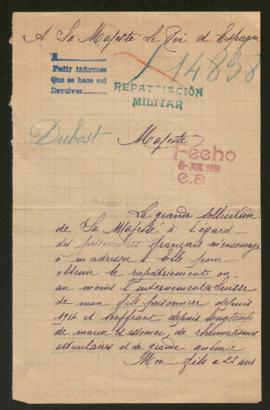 A Sa Majesté le Roi d'Espagne
14838
Pedir informes
Que se hace así
Devolver
REPATRIACIÓN
MILITAR
Dubost
Majesté
Fecho
1918
La grande sollicitude
de Sa Majesté à l'égard
des prisonniers français m'encourage
à m'adresser à Elle pour
obtenir le rapatriement ou
au moins l'internement en Suisse
de mon fils prisonnier depuis
1914 et souffrant depuis longtemps
de maux d'estomac, de rhumatismes
articulaires et de grande anémie
Mon fils a 25 ans